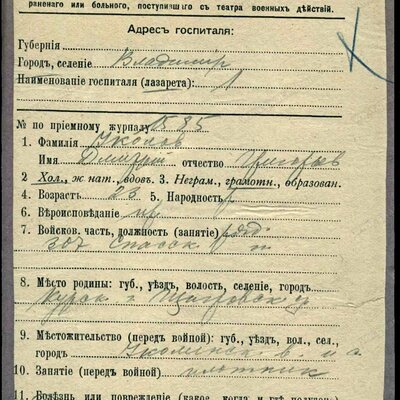 раненаго или больного, поступившаго съ театра военныхъ дѣйствій.
Адресъ госпиталя:
Губернія
Городъ, селеніе Владимір
Наименованіе госпиталя (лазарета)
№ по пріемному журналу 1585
1. Фамилія Уколов
Имя Дмитрій отчество Григорьев
2 Хол., ж нат., вдовъ. 3. Неграм., грамотн., образован.
4. Возрастъ 23 5. Народность р
6. Вѣроисповѣданіе пр
7. Войсков. часть, должность (занятіе) ряд
Спасск
8. Мѣсто родины: губ., уѣздъ, волость, селеніе, городъ
Курск г Щигровск у
9. Мѣстожительство (передъ войной): губ., уѣздъ, вол., сел.,
городъ
10. Занятіе (передъ войной) плотник
11. Болѣзнь или поврежденіе (какое, когда и гдѣ получено)